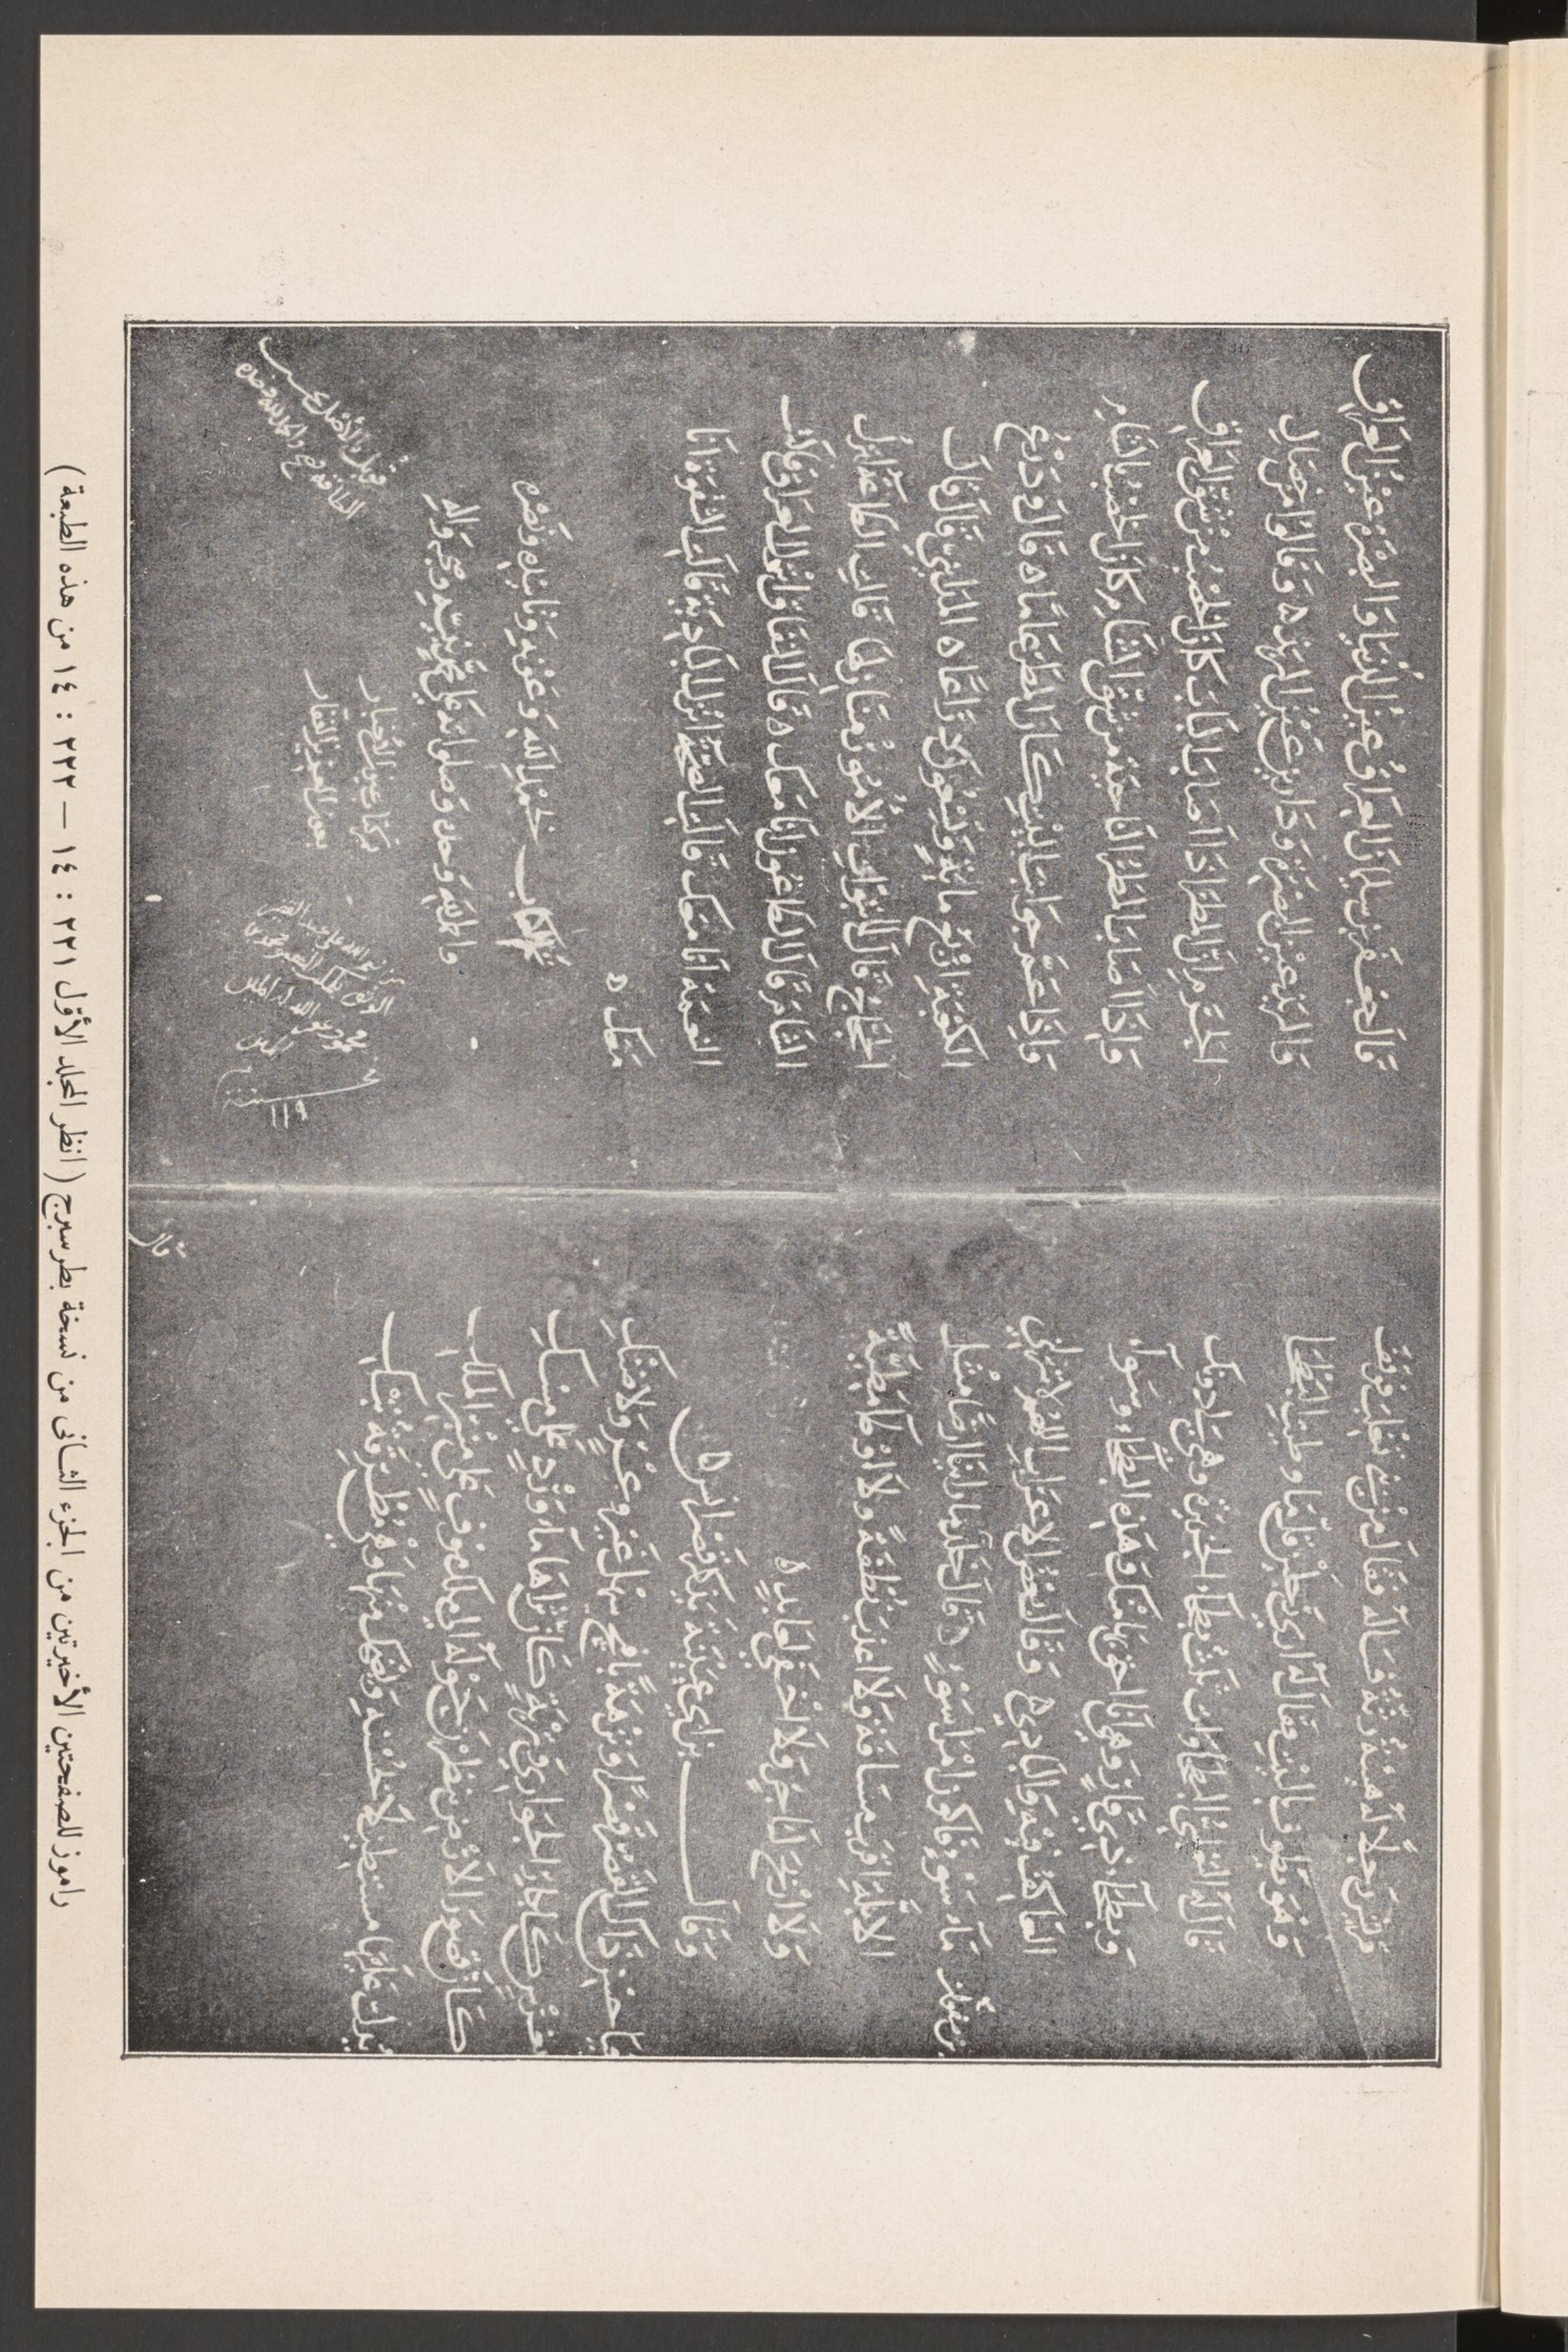 قريش رجلا له هيئة رثة فقال من بني تغلب فوقف
وهو يطوف بالبيت فقال له أرى رجلين قلما وطئتا البطحا
قال له البطحاوات ثلث بطحاء الجزيرة وهي لي دونك
وبطحاء ذي قار وأنا أحق بها منك وهذه البطحاء وسواء
العاكف فيه والبادي وقال بعض الأعراب اللهم لا تنزلني
ماء سوء فأكون امرأ سوء قال خالد ما رأينا أرضا مثل
بن صفوان
الأبلة أقرب مسافة ولا أعذب نطفة ولا أوطأ مطية
ولا أربح لتاجر ولا أخفى لعابد ه
وقال ابن أبي عيينة يذكر قصر أنس
فيا حسن ذاك القصر قصرا ونزهة بأفيح سهل غير وعر ولا ضنك
بغرس كأبكار الجواري وتربة كأن ثراها ماء ورد على مسك
كأن قصور الأرض ينظرن حوله إلى ملك موف على منبر الملك
يدل عليها مستطيلا بحسنه ويضحك منها وهي مطرقة تبكي
قال
قال جعفر بن سليمان العراق عين الدنيا والبصرة عين العراق
والمربد عين البصرة وداري عين المربد ه وقالوا من خصال
الحرم إن المطر إذا أصاب الباب كان الخصب من شق العراق
وإذا أصاب المطر الناحية من شق الشام كان الخصب بالشام
وإذا عم جوانب البيت كان المطر عاما ه قالوا وذرع
الكعبة أربع مائة وتسعون ذراعا ه المدائني قال قال
الحجاج قال لما تبوأت الأمور منازلها قالت الطاعة أنزل
الشام قال الطاعون أنا معك ه قال النفاق أنزل العراق قالت
النعمة أنا معك قالت الصحة أنزل البادية قالت الشقوة أنا
معك ه
تم الكتاب بحمد الله وعونه وتأييده ونصره
والحمد لله وحده وصلواته على محمد نبيه وصحبه وآله
تم كتاب عيون الأخبار
بعون العزيز الغفار
١١٩
راموز للصفحتين الأخيرتين من الجزء الثانى من نسخة بطرسبرج ( انظر المجلد الأوّل ٢٢١ : ١٤ — ٢٢٢ : ١٤ من هذه الطبعة )